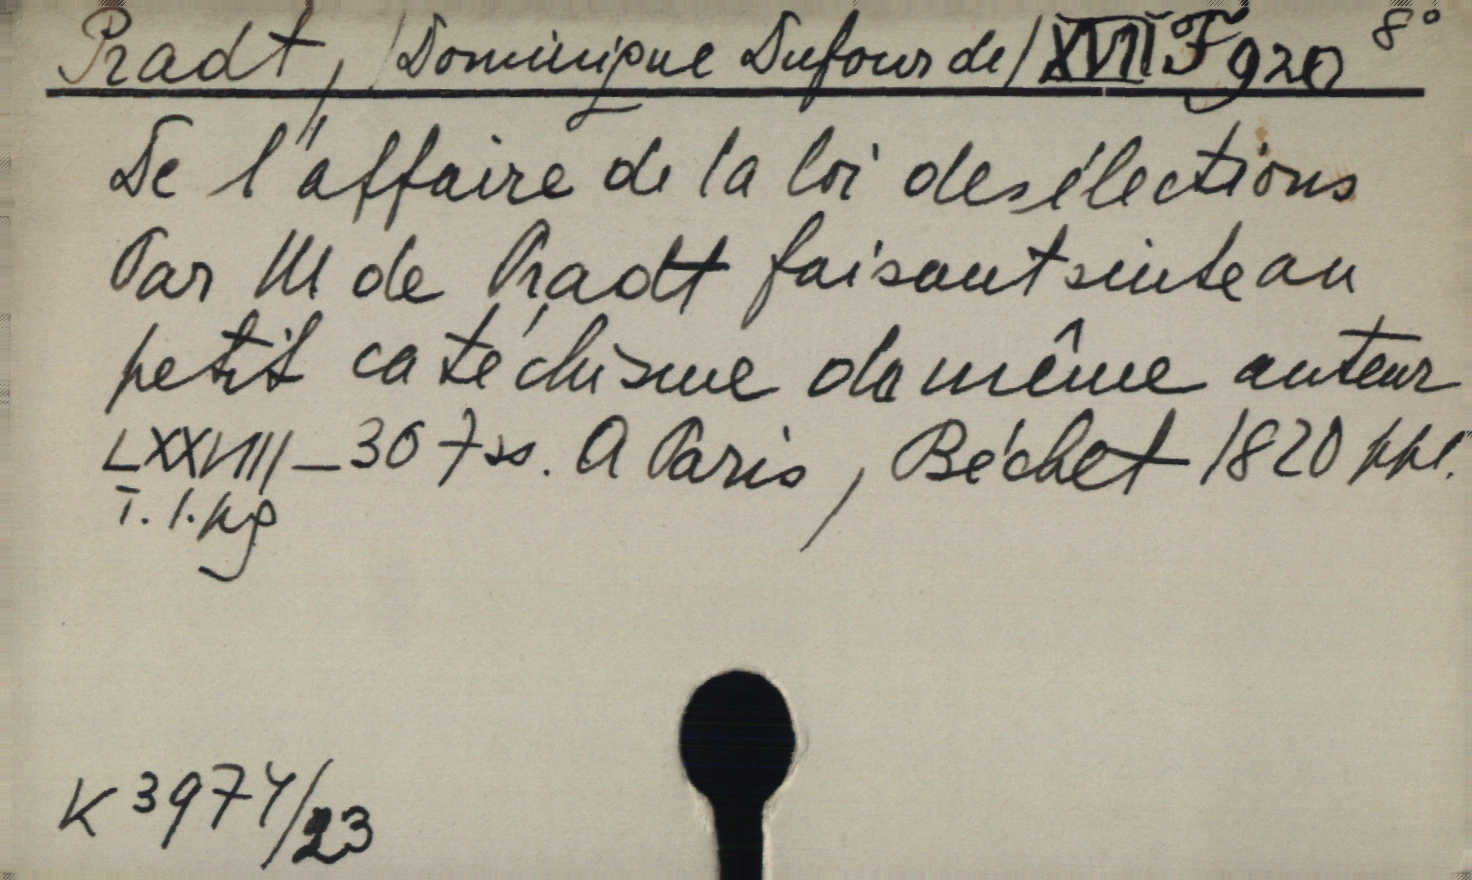 Pradt, /Dominique Dufour de/ XVIII F 920 8°
De l'affaire de la loi des élections
Par M de Pradt faisant suite au
petit catéchisme du même auteur
LXXVIII-307 ss. A Paris, Béchet 1820 ppł.
T. 1. pg
K 3974/23